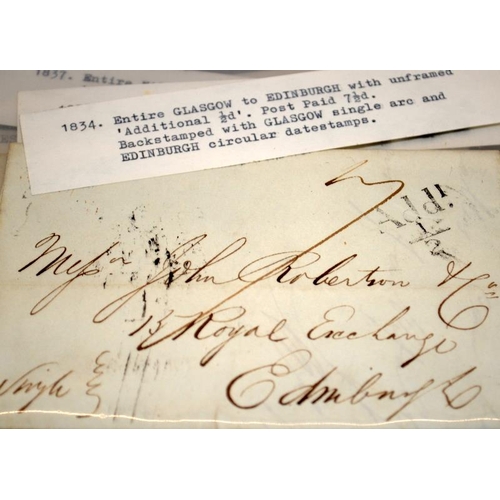 1837. Entire
1834. Entire GLASGOW to EDINBURGH with unframed
'Additional ½d'. Post Paid 7½d.
Backstamped with GLASGOW single arc and
EDINBURGH circular datestamps.
7
Add.
½
Messrs John Robertson & Co
13 Royal Exchange
Single
Edinburgh